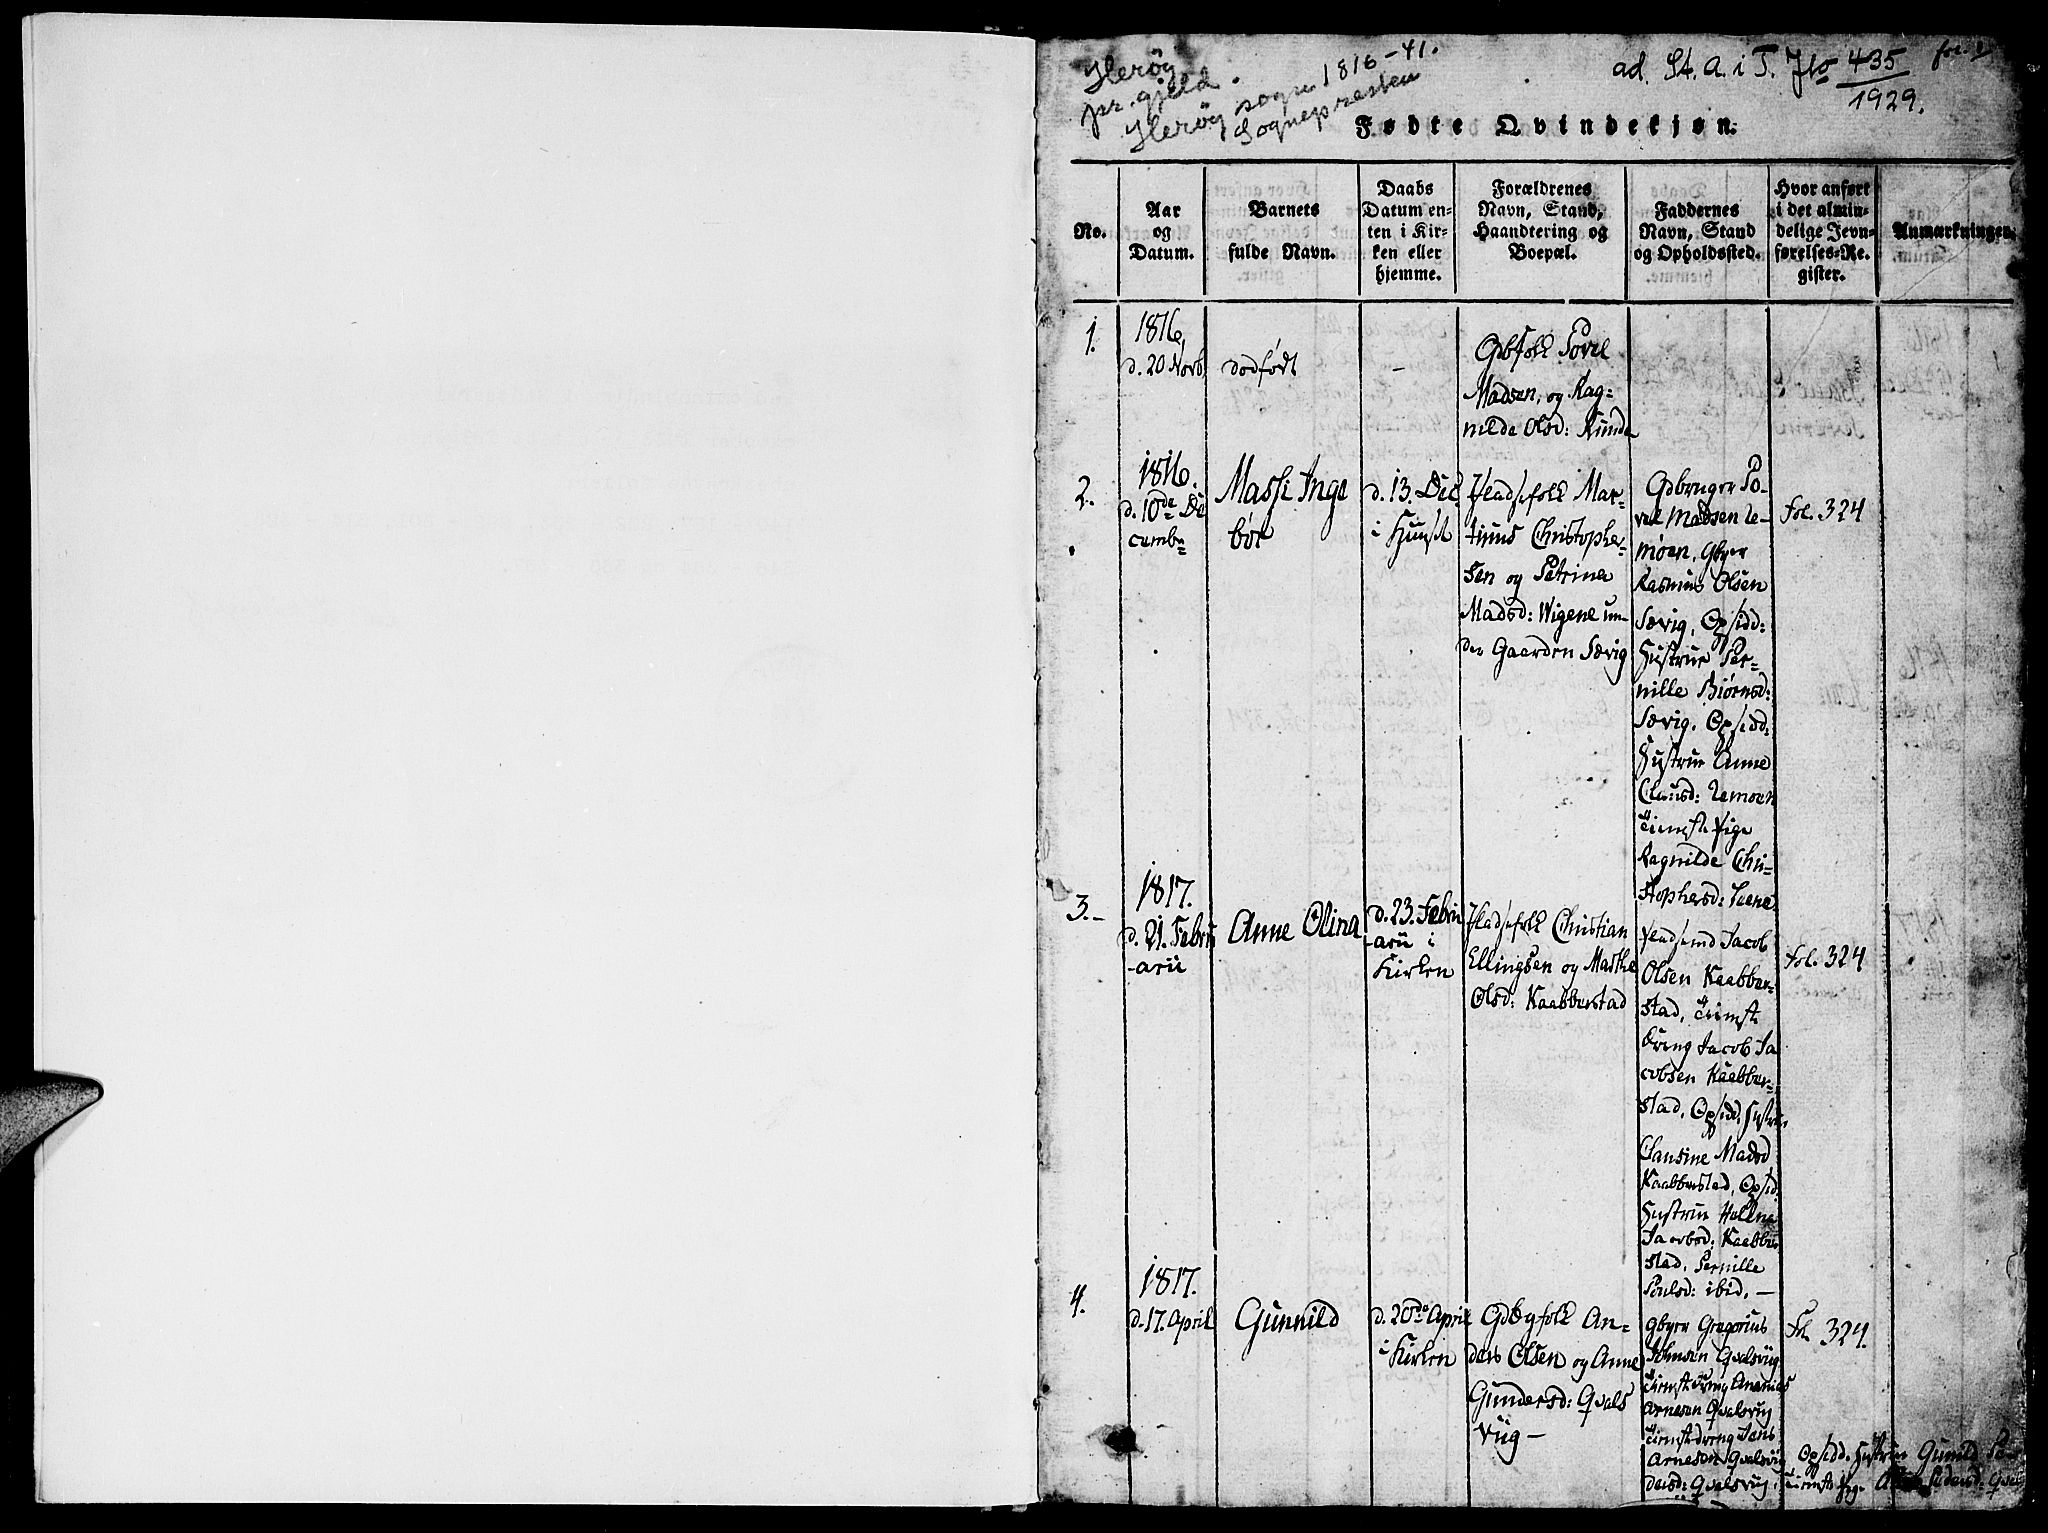 Herøy
pr. gjeld.
Herøy sogn 1816-41.
Sognepresten
ad. St. A. i T. Jno 435/1929.
fol. 1
Fødte Qvindekjøn.
No.
Aar
og
Datum.
Barnets
fulde Navn.
Daabs
Datum en-
ten i Kir-
ken eller
hjemme.
Forældrenes
Navn, Stand,
Haandtering og
Boepæl.
Faddernes
Navn, Stand
og Opholdssted.
Hvor anført
i det almin-
delige Jevn-
førelses-Re-
gister.
Anmærkninger.
1.
1816,
d. 20 Novb
dødfødt
-
Gbfolk Povel
Madsen, og Rag-
nilde Olsd: Runde
2.
1816.
d. 10de De
cembr
Masse Inge
bør
d. 13. Dec
i Huust
Huusfolk Mar-
tinus Christopher-
sen og Petrina
Madsd: Wigene un-
der Gaarden Sævig
Gdbruger Po-
vel Madsen Le-
møen, Gbyer
Rasmus Olsen
Sævig, Opsidd:
Hustrue Per-
nille Biørnsd:
Sævig, Opsidd:
Hustrue Anne
Clausd: Lemoen
tienst. Pige
Ragnilde Chri-
stophersd:
fol. 324
3.-
1817.
d. 21. Febru
-arii
Anne Olina
d. 23. Febru
-arii i
Kirken
Christian
Ellingsen og Marthe
Olsd: Kaabberstad
Jacob
Olsen Kaabber-
stad, tienst.
dreng Jacob Ja
cobsen Kaabber-
stad, Opsidd. Hustrue
Clausine Madsd
Kaabberstad, Opsid.
Hustrue
Jacobsd: Kaabber
stad, Pernille
Poulsd: ibid. -
fol. 324
4.
1817.
d. 17. April
Gunnild
d. 20de April
i Kirken
Gdbyfolk An-
ders Olsen og Anne
Gundersd: Qvals
viig -
Gbyer Gregorius
Johnsen Qvalsviig
tienstdreng Ananias
Arnesen Qvalsviig
tienstdreng Jens
Arnesen Qvalsviig
Opsidd. Hustrue Gunild Pe-
dersd: Qvalsviig, tienste Pige Pedersd: Qval
Fol. 324.